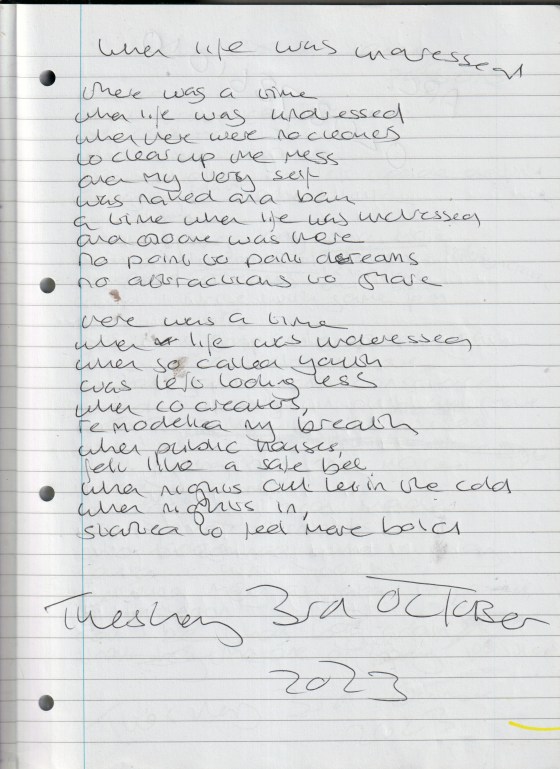 when life was undressed
there was a time
when life was undressed
when there were no cleaners
to clear up the mess
and my very self
was naked and bare
a time when life was undressed
and no one was there
no paint to paint dreams
no abstractions to share
there was a time
when life was undressed
when so called youth
was left looking less
when co creators,
remodelled my breath
when public houses,
felt like a safe bet
when nights out let in the cold
when nights in,
started to feel more bold
Tuesday 3rd October
2023